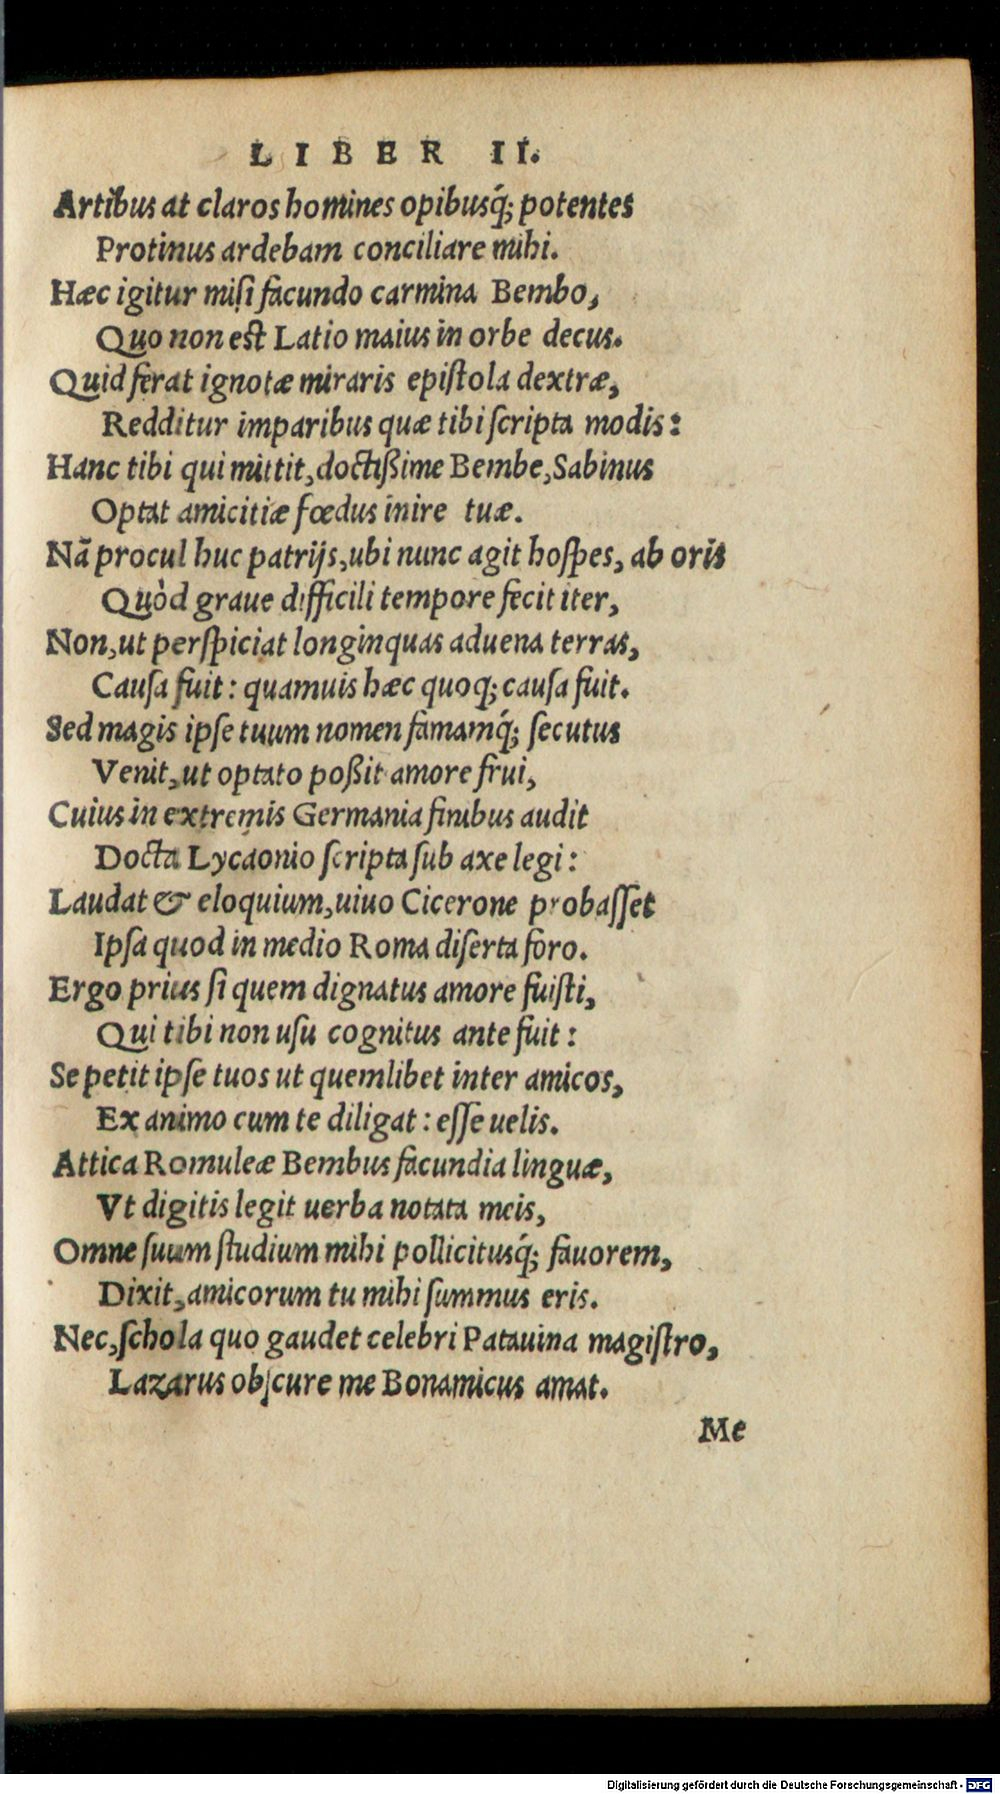 LIBER II.
Artibus at claros homines opibusq́; potentes
Protinus ardebam conciliare mihi.
Hæc igitur miſi facundo carmina Bembo,
Quo non eſt Latio maius in orbe decus.
Quid ferat ignotæ miraris epiſtola dextræ,
Redditur imparibus quæ tibi ſcripta modis:
Hanc tibi qui mittit, doctißime Bembe, Sabinus
Optat amicitiæ fœdus inire tuæ.
Nā procul huc patrijs, ubi nunc agit hoſpes, ab oris
Quòd graue difficili tempore fecit iter,
Non, ut perſpiciat longinquas aduena terras,
Cauſa fuit: quamuis hæc quoq; cauſa fuit.
Sed magis ipſe tuum nomen famamq́; ſecutus
Venit, ut optato poßit amore frui,
Cuius in extremis Germania finibus audit
Docta Lycaonio ſcripta ſub axe legi:
Laudat & eloquium, uiuo Cicerone probaſſet
Ipſa quod in medio Roma diſerta foro.
Ergo prius ſi quem dignatus amore fuiſti,
Qui tibi non uſu cognitus ante fuit:
Se petit ipſe tuos ut quemlibet inter amicos,
Ex animo cum te diligat: eſſe uelis.
Attica Romuleæ Bembus facundia linguæ,
Vt digitis legit uerba notata meis,
Omne ſuum ſtudium mihi pollicitusq́; fauorem,
Dixit, amicorum tu mihi ſummus eris.
Nec, ſchola quo gaudet celebri Patauina magiſtro,
Lazarus obſcure me Bonamicus amat.
Me
Digitalisierung gefördert durch die Deutsche Forschungsgemeinschaft - DFG